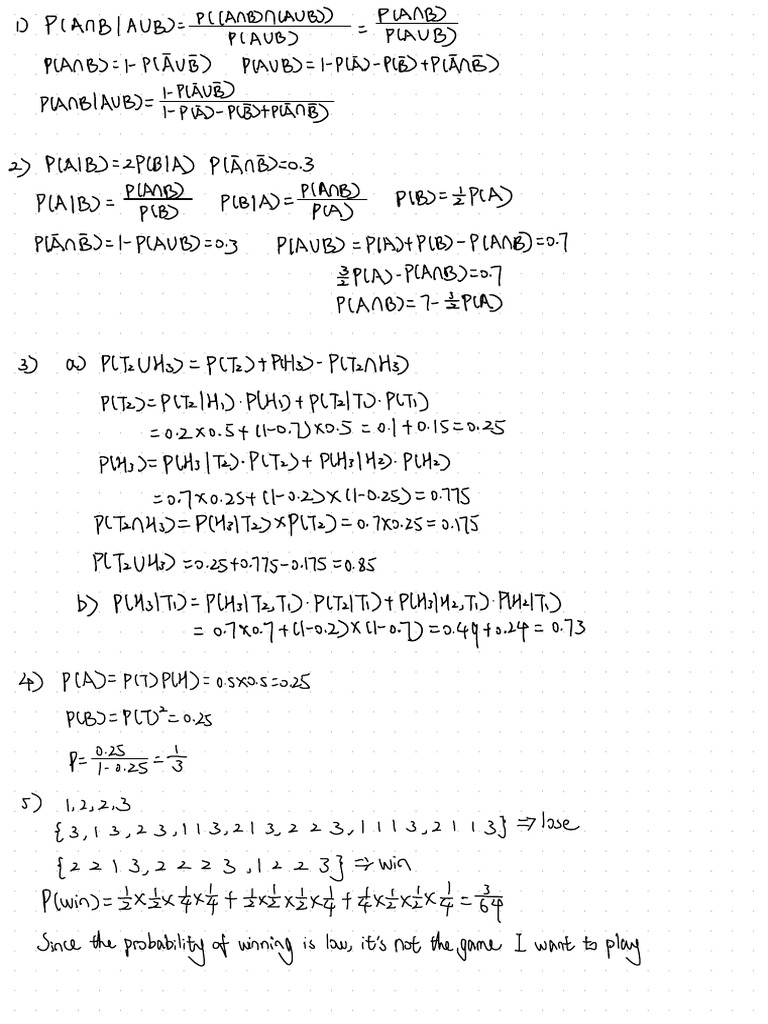 1) P(A∩B|A∪B)=P((A∩B)∩(A∪B))/P(A∪B) = P(A∩B)/P(A∪B)
P(A∩B)=1-P(Ā∪B̄) P(A∪B)=1-P(Ā)-P(B̄)+P(Ā∩B̄)
P(A∩B|A∪B)=1-P(Ā∪B̄)/1-P(Ā)-P(B̄)+P(Ā∩B̄)
2) P(A|B)=2P(B|A) P(Ā∩B̄)=0.3
P(A|B)=P(A∩B)/P(B) P(B|A)=P(A∩B)/P(A) P(B)=1/2P(A)
P(Ā∩B̄)=1-P(A∪B)=0.3 P(A∪B)=P(A)+P(B)-P(A∩B)=0.7
3/2P(A)-P(A∩B)=0.7
P(A∩B)=7-3/2P(A)
3) a) P(T₂∪H₃)=P(T₂)+P(H₃)-P(T₂∩H₃)
P(T₂)=P(T₂|H₁)·P(H₁)+P(T₂|T₁)·P(T₁)
=0.2×0.5+(1-0.7)×0.5=0.1+0.15=0.25
P(H₃)=P(H₃|T₂)·P(T₂)+P(H₃|H₂)·P(H₂)
=0.7×0.25+(1-0.2)×(1-0.25)=0.775
P(T₂∩H₃)=P(H₃|T₂)×P(T₂)=0.7×0.25=0.175
P(T₂∪H₃)=0.25+0.775-0.175=0.85
b) P(H₃|T₁)=P(H₃|T₂,T₁)·P(T₂|T₁)+P(H₃|H₂,T₁)·P(H₂|T₁)
=0.7×0.7+(1-0.2)×(1-0.7)=0.49+0.24=0.73
4) P(A)=P(T)P(H)=0.5×0.5=0.25
P(B)=P(T)²=0.25
P=0.25/1-0.25=1/3
5) 1,2,2,3
{3,13,23,113,213,223,1113,2113}⇒lose
{2213,2223,1223}⇒win
P(win)=1/2×1/2×1/4×1/4+1/2×1/2×1/2×1/4+1/4×1/2×1/2×1/4=3/64
Since the probability of winning is low, it's not the game I want to play